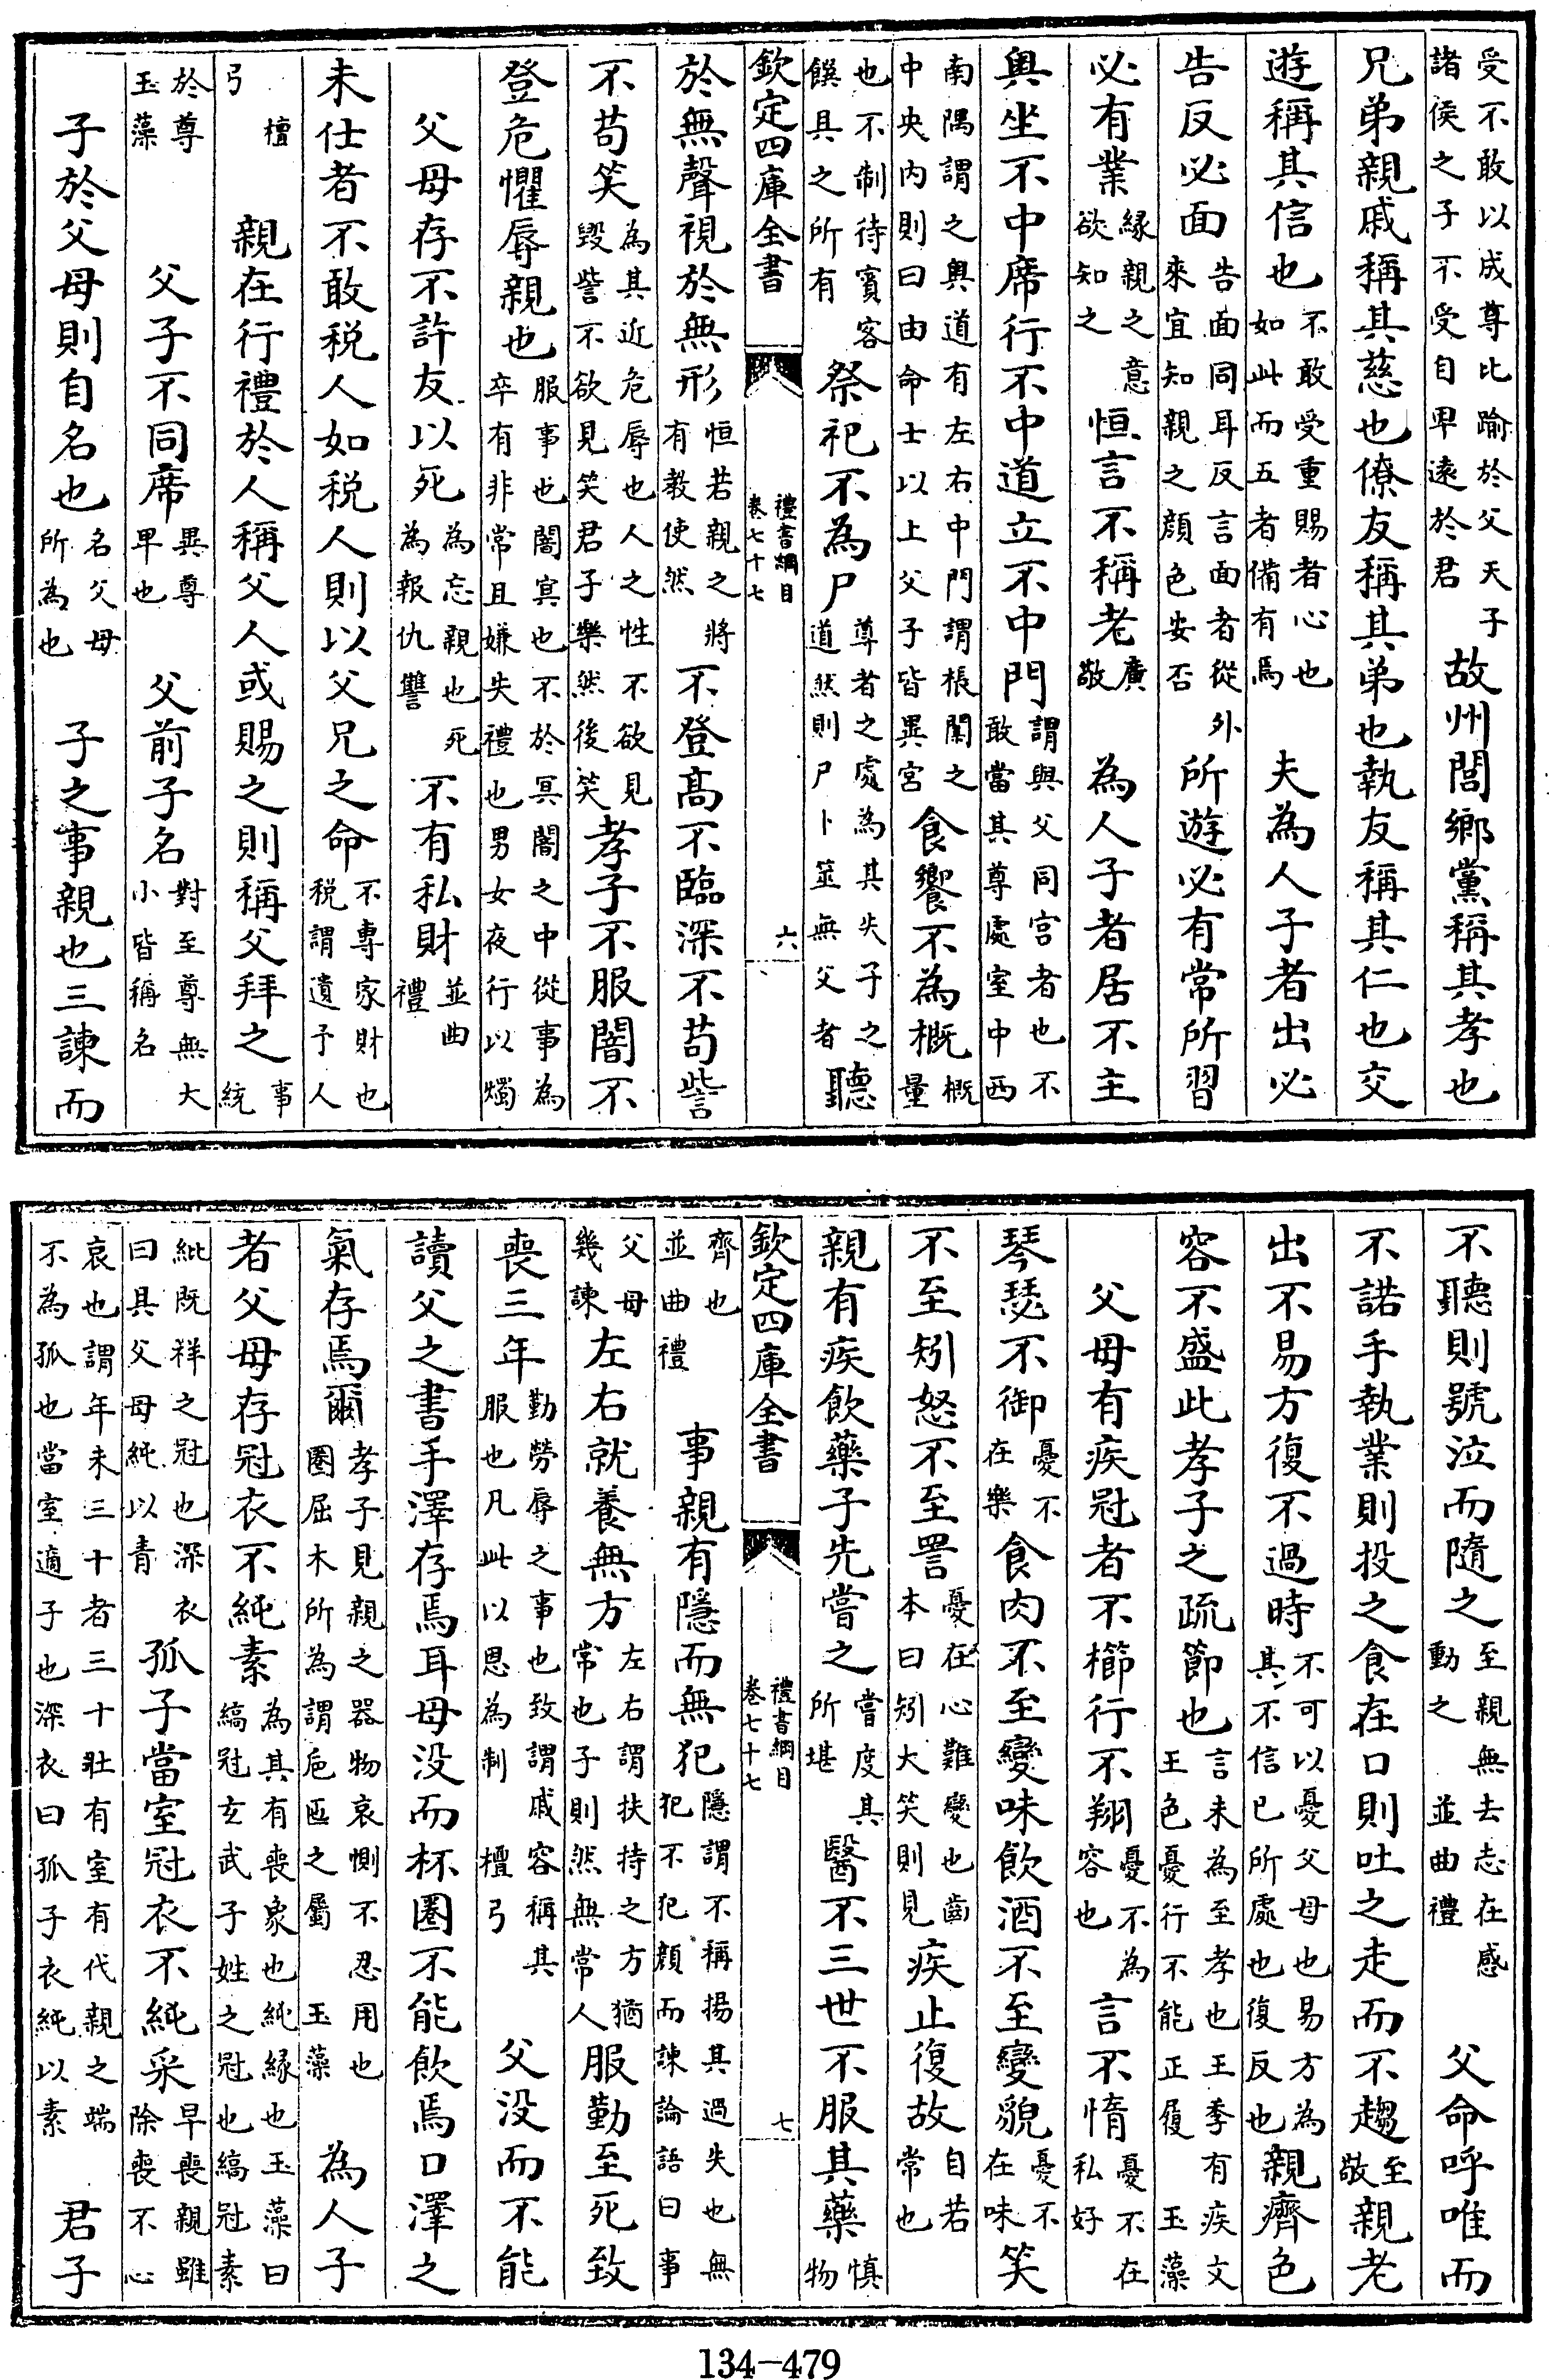 受不敢以成尊比踰於父天子諸侯之子不受自卑遠於君故州閭鄉黨稱其孝也
兄弟親戚稱其慈也僚友稱其弟也執友稱其仁也交
遊稱其信也不敢受重賜者心也如此而五者備有焉　夫為人子者出必
告反必面告面同耳反言面者從外來宜知親之顔色安否所遊必有常所習
必有業縁親之意欲知之恒言不稱老廣敬　為人子者居不主
奥坐不中席行不中道立不中門謂與父同宮者也不敢當其尊處室中西
南隅謂之奥道有左右中門謂棖闑之中央内則曰由命士以上父子皆異宮食饗不為概概量
也不制待賓客饌具之所有祭祀不為尸尊者之處為其失子之道然則尸卜筮無父者聽
欽定四庫全書
禮書綱目
卷七十七
六
於無聲視於無形恒若親之將有教使然不登髙不臨深不苟訾
不苟笑為其近危辱也人之性不欲見毀訾不欲見笑君子樂然後笑孝子不服闇不
登危懼辱親也服事也闇冥也不於冥闇之中從事為卒有非常且嫌失禮也男女夜行以燭
父母存不許友以死為忘親也死為報仇讐不有私財並曲禮
未仕者不敢税人如税人則以父兄之命不專家財也税謂遺予人
檀弓　親在行禮於人稱父人或賜之則稱父拜之事統
於尊玉藻　父子不同席異尊卑也　父前子名對至尊無大小皆稱名
子於父母則自名也名父母所為也　子之事親也三諫而
不聽則號泣而隨之至親無去志在感動之並曲禮　父命呼唯而
不諾手執業則投之食在口則吐之走而不趨至敬親老
出不易方復不過時不可以憂父母也易方為其不信已所處也復反也親癠色
容不盛此孝子之疏節也言未為至孝也王季有疾文王色憂行不能正履玉藻
父母有疾冠者不櫛行不翔憂不為容也言不惰憂不在私好
琴瑟不御憂不在樂食肉不至變味飲酒不至變貌憂不在味笑
不至矧怒不至詈憂在心難變也齒本曰矧大笑則見疾止復故自若常也
親有疾飲藥子先嘗之嘗度其所堪醫不三世不服其藥慎物
欽定四庫全書
禮書綱目
卷七十七
七
齊也並曲禮　事親有隱而無犯隱謂不稱揚其過失也無犯不犯顔而諫論語曰事
父母幾諫左右就養無方左右謂扶持之方猶常也子則然無常人服勤至死致
喪三年勤勞辱之事也致謂戚容稱其服也凡此以恩為制檀弓　父没而不能
讀父之書手澤存焉耳母没而杯圈不能飲焉口澤之
氣存焉爾孝子見親之器物哀惻不忍用也圈屈木所為謂巵匜之屬玉藻　為人子
者父母存冠衣不純素為其有喪象也純緣也玉藻曰縞冠玄武子姓之冠也縞冠素
紕既祥之冠也深衣曰具父母純以青孤子當室冠衣不純采早喪親雖除喪不心
哀也謂年未三十者三十壯有室有代親之端不為孤也當室適子也深衣曰孤子衣純以素　君子
134-479